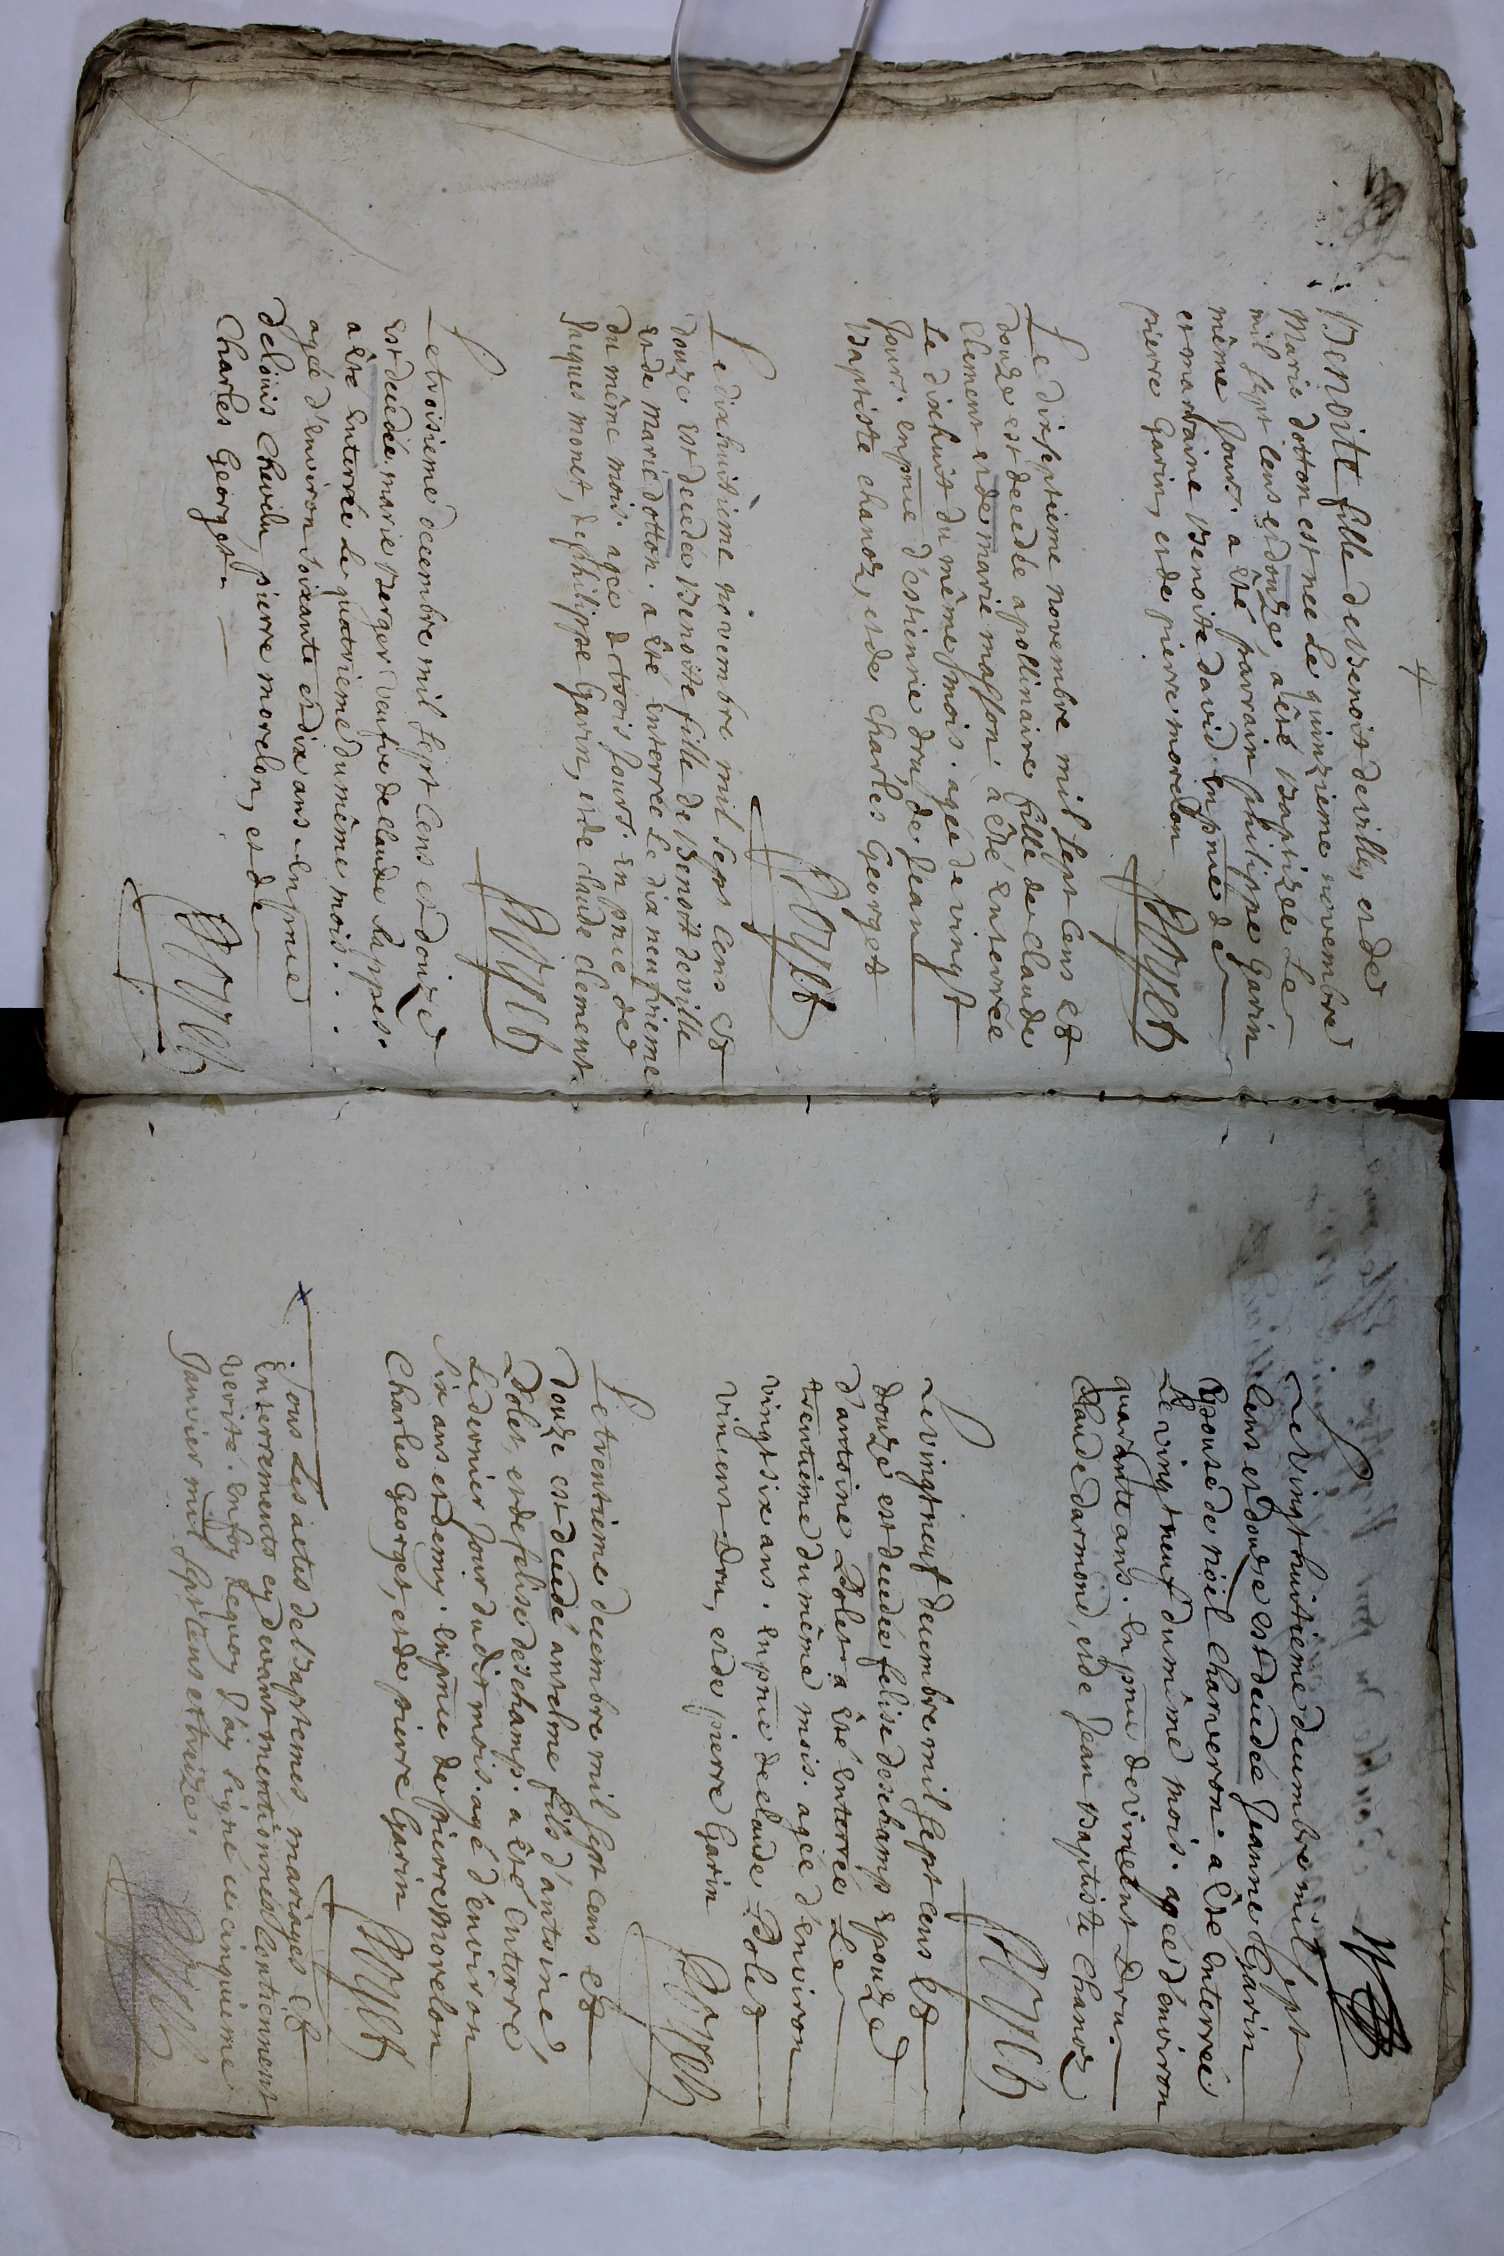 4
Benoite fille de Benoit deville, et de
Marie dotton est née Le quinzieme novembre
mil sept cens et douze, a été baptizée Le
même Jour. a été parrain philippe Garin
et marraine Benoite david. en pnce de
pierre Garin, et de pierre morelon
Le dixseptieme novembre mil sept cens et
douze est decedée apollinaire fille de claude
Clement et de marie masson. a été enterrée
Le dixhuit du même mois. agée de vingt
Jours. en pnce d'estienne dru, de Jean
Baptiste chanoz, et de charles Georget
Le dixhuitième novembre mil sept cens et
douze est decedée Benoite fille de Benoit deville
et de marie dotton. a été enterrée Le dix neufvieme
du même mois. agée de trois Jours. en pnce de
Jaques monet, de philippe Garin, et de claude clement.
Le troisieme decembre mil sept cens et douze
est decedée marie Berger veufve de claude
a été enterrée Le quatrieme du même mois.
agée d'environ soixante et dix ans. en pnce
de Loüis chevelu, pierre morelon, et de
Charles Georget.
Le vingthuitieme decembre mil sept
cens et douze est decedée Jeanne Garin
Epouse de noël Charveron. a été enterrée
Le vingt neuf du même mois. agée d'environ
quarante ans. en pnce de vincent Dru.
Claude darmond, et de Jean Baptiste Chanoz
Le vingtneuf decembre mil sept cens et
douze est decedée felise deschamp epouze
d'antoine Dolet a été enterrée Le
trentième du même mois. agée d'environ
vingt six ans. en pnce de claude Dolet
vincent Dru, et de pierre Garin
Le trentieme decembre mil sept cens et
douze est decedé antelme fils d'antoine
Dolet, et de felise deschamp. a été enterré
Le dernier Jour dudit mois. agé d'environ
six ans et demy. en pnce de pierre morelon
Charles Georget, et de pierre Garin
Tous Les actes de Baptemes, mariages et
enterrements cy devant mentionnes contiennent
verité. en foy dequoy J'ay signé ce cinquieme
Janvier mil sept cens et treize.